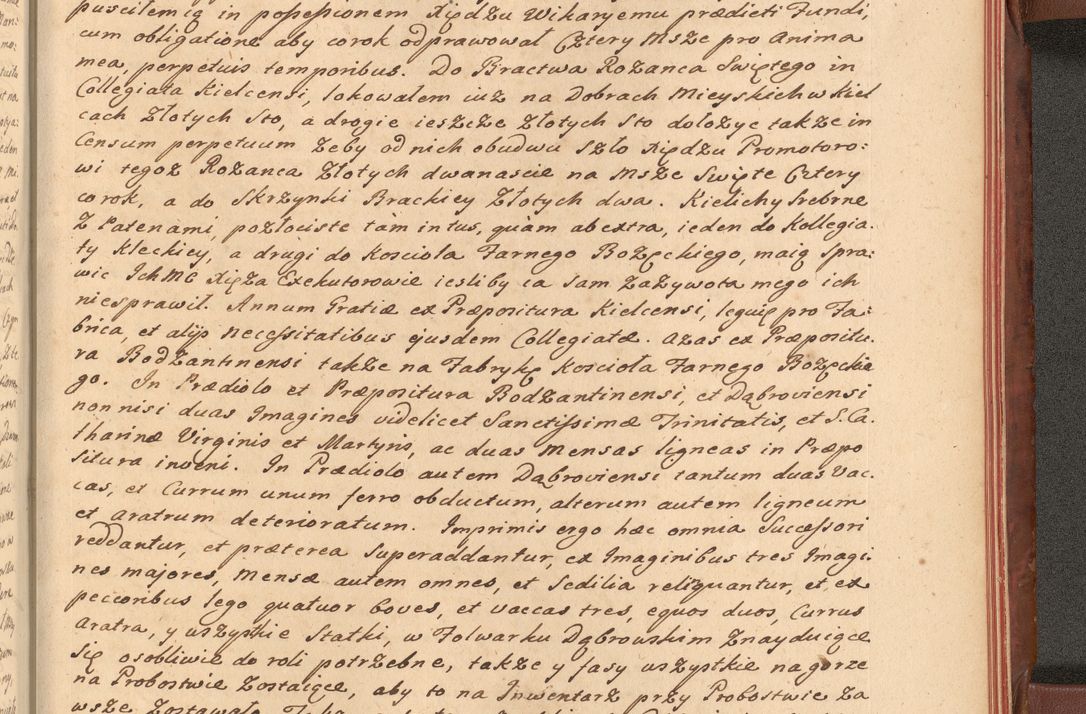 puscilem ią in possessionem Xiędzu Wikaryemu prædicti Fundi,
cum obligatione aby corok odprawował Cztery Msze pro anima
mea, perpetuis temporibus. Do Bractwa Rożanca Swiętego in
Collegiata Kielcensi, lokowałem iuż na Dobrach Mieyskich w Kiel
cach Złotych Sto, a drogie ieszcze Złotych Sto dołożyc także in
Censum perpetuum żeby od nich obudwu szło Xiędzu Promotoro:
wi tegoż Rożanca Złotych dwanascie na Msze Swięte Cztery
corok, a do Skrzynki Brackiey Złotych dwa. Kielichy Srebrne
z Patenami, pozłociste tàm intus, quàm ab extra, ieden do Kollegia.
ty Kleckiey, a drugi do Koscioła Farnego Bożęckiego, maią spra:
wic IchMC Xięża Exekutorowie iesliby ia sam za żywota mego ich
niesprawił. Annum Gratiæ ex Præpositura Kielcensi, leguię pro Fa:
brica, et alijs necessitatibus ejusdem Collegiatæ. azas ex Præpositu.
ra Bodzantinensi także na Fabrykę Koscioła Farnego Bożęckie
go. In Prædiolo et Præpositura Bodzantinensi, et Dąbroviensi
non nisi duas Imagines videlicet Sanctissimæ Trinitatis, et S. Ca.
tharinæ Virginis et Martyris, ac duas mensas ligneas in Præpo
situra inveni. In Prædiolo autem Dąbroviensi tantum duas Vac.
cas, et Currum unum ferro obductum, alterum autem ligneum
et aratrum deterioratum. Imprimis ergo hæc omnia Successori
reddantur, et præterea superaddantur, ex Imaginibus tres Imagi
nes majores, Mensæ autem omnes, et Sedilia relinquantur, et ex
peccoribus lego quatuor boves, et vaccas tres, equos duos, Currus
aratra, y wszystkie Statki, w Folwarku Dąbrowskim znayduiące
się osobliwie do roli potrzebne, także y fasy wszystkie na gorze
na Probostwie zostaiące, aby to na Inwentarz przy Probostwie za
wsze zostawało